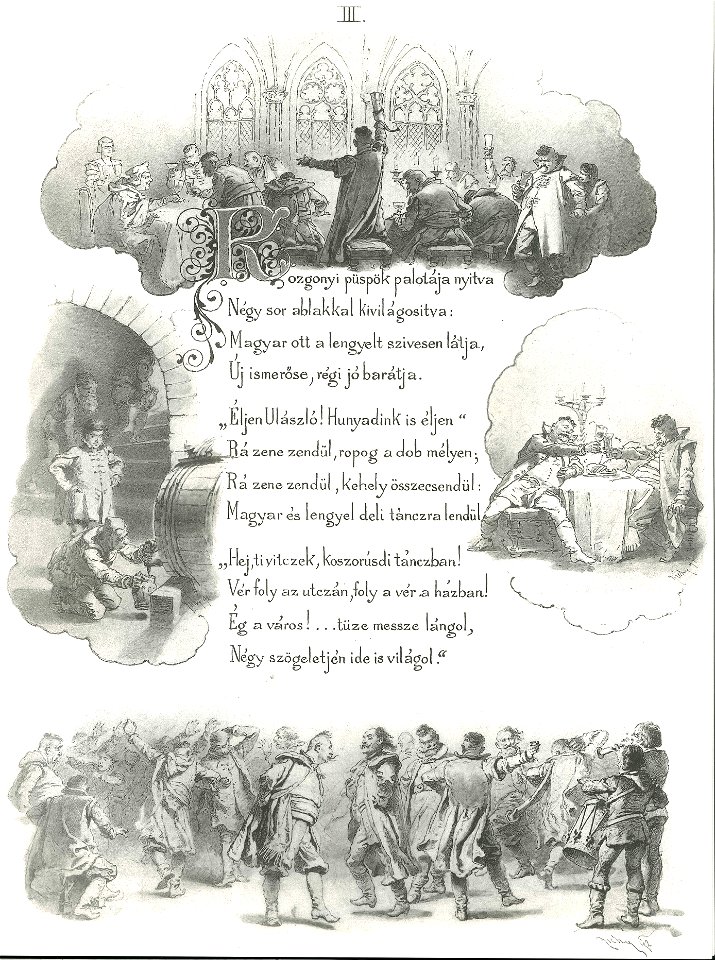 III.
Rozgonyi püspök palotája nyitva
Négy sor ablakkal kivilágositva:
Magyar ott a lengyelt szivesen látja,
Új ismerőse, régi jó barátja.
„Éljen Ulászló! Hunyadink is éljen “
Rá zene zendül, ropog a dob mélyen;
Rá zene zendül, kehely összecsendül:
Magyar és lengyel deli tánczra lendül
„Hej, ti vitézek, koszorúsdi tánczban!
Vér foly az utczán, foly a vér a házban!
Ég a város! ...tüze messze lángol,
Négy szögeletjén ide is világol.“